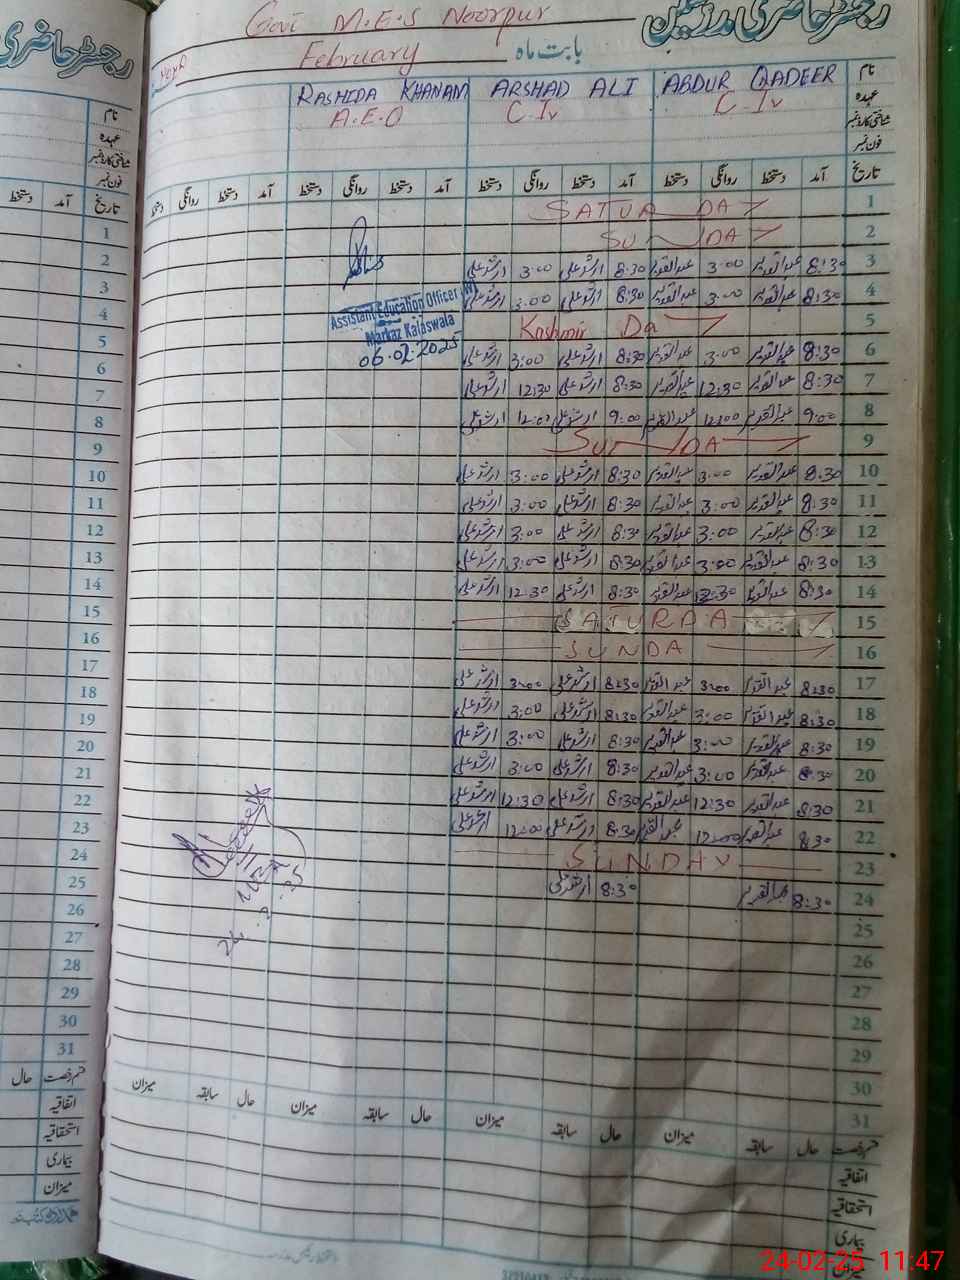 رجسٹر حاضری مدرسین
Govt M.E.S Noorpur
بابت ماہ February
نام ABDUR QADEER ARSHAD ALI RASHIDA KHANAM
عہدہ C.Iv C-Iv A.E.O
شناختی کارڈ نمبر
فون نمبر
تاریخ آمد دستخط روانگی دستخط آمد دستخط روانگی دستخط آمد دستخط روانگی دستخط آمد دستخط روانگی دستخط
1 SATUR DAY
2 SUNDAY
3 8:30 عبدالقدیر 3:00 عبدالقدیر 8:30 ارشد علی 3:00 ارشد علی
4 8:30 عبدالقدیر 3:00 عبدالقدیر 8:30 ارشد علی 3:00 ارشد علی
Assistant Education Officer (W)
Markaz Kalaswala
06.02.2025
5 Kashmir Day
6 8:30 عبدالقدیر 3:00 عبدالقدیر 8:30 ارشد علی 3:00 ارشد علی
7 8:30 عبدالقدیر 12:30 عبدالقدیر 8:30 ارشد علی 12:30 ارشد علی
8 9:00 عبدالقدیر 12:00 عبدالقدیر 9:00 ارشد علی 12:00 ارشد علی
9 SUNDAY
10 8:30 عبدالقدیر 3:00 عبدالقدیر 8:30 ارشد علی 3:00 ارشد علی
11 8:30 عبدالقدیر 3:00 عبدالقدیر 8:30 ارشد علی 3:00 ارشد علی
12 8:30 عبدالقدیر 3:00 عبدالقدیر 8:30 ارشد علی 3:00 ارشد علی
13 8:30 عبدالقدیر 3:00 عبدالقدیر 8:30 ارشد علی 3:00 ارشد علی
14 8:30 عبدالقدیر 12:30 عبدالقدیر 8:30 ارشد علی 12:30 ارشد علی
15 SATURDAY
16 SUNDAY
17 8:30 عبدالقدیر 3:00 عبدالقدیر 8:30 ارشد علی 3:00 ارشد علی
18 8:30 عبدالقدیر 3:00 عبدالقدیر 8:30 ارشد علی 3:00 ارشد علی
19 8:30 عبدالقدیر 3:00 عبدالقدیر 8:30 ارشد علی 3:00 ارشد علی
20 8:30 عبدالقدیر 3:00 عبدالقدیر 8:30 ارشد علی 3:00 ارشد علی
21 8:30 عبدالقدیر 12:30 عبدالقدیر 8:30 ارشد علی 12:30 ارشد علی
22 8:30 عبدالقدیر 12:00 عبدالقدیر 8:30 ارشد علی 12:00 ارشد علی
23 SUNDAY
24 8:30 عبدالقدیر 8:30 ارشد علی
25
26
27
28
29
30
31
قسم رخصت حال سابقہ میزان حال سابقہ میزان حال سابقہ میزان حال سابقہ میزان
اتفاقیہ
استحقاقیہ
بیماری
میزان
رجسٹر حاضری
نام
عہدہ
شناختی کارڈ نمبر
فون نمبر
تاریخ آمد دستخط
1
2
3
4
5
6
7
8
9
10
11
12
13
14
15
16
17
18
19
20
21
22
23
24
25
26
27
28
29
30
31
قسم رخصت حال
اتفاقیہ
استحقاقیہ
بیماری
میزان
24-02-25 11:47